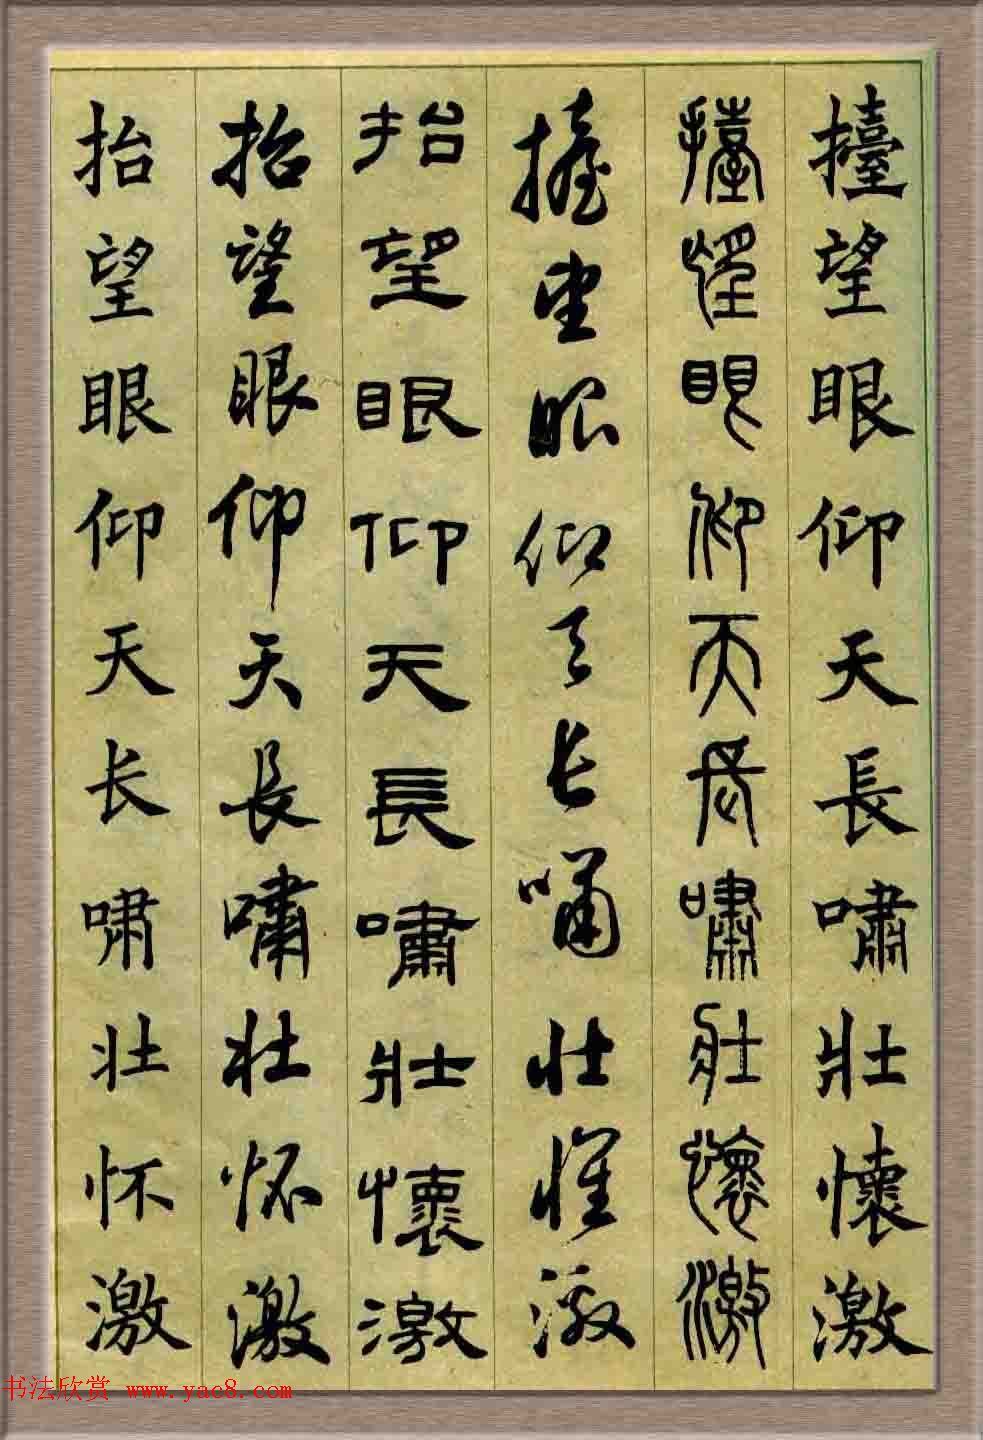 擡望眼仰天長嘯壯懷激
擡望眼仰天長嘯壯懷激
擡望眼仰天长嘯壮懷激
抬望眼仰天長嘯壯懷激
抬望眼仰天長嘯壮怀激
抬望眼仰天长啸壮怀激
书法欣赏 www.yac8.com